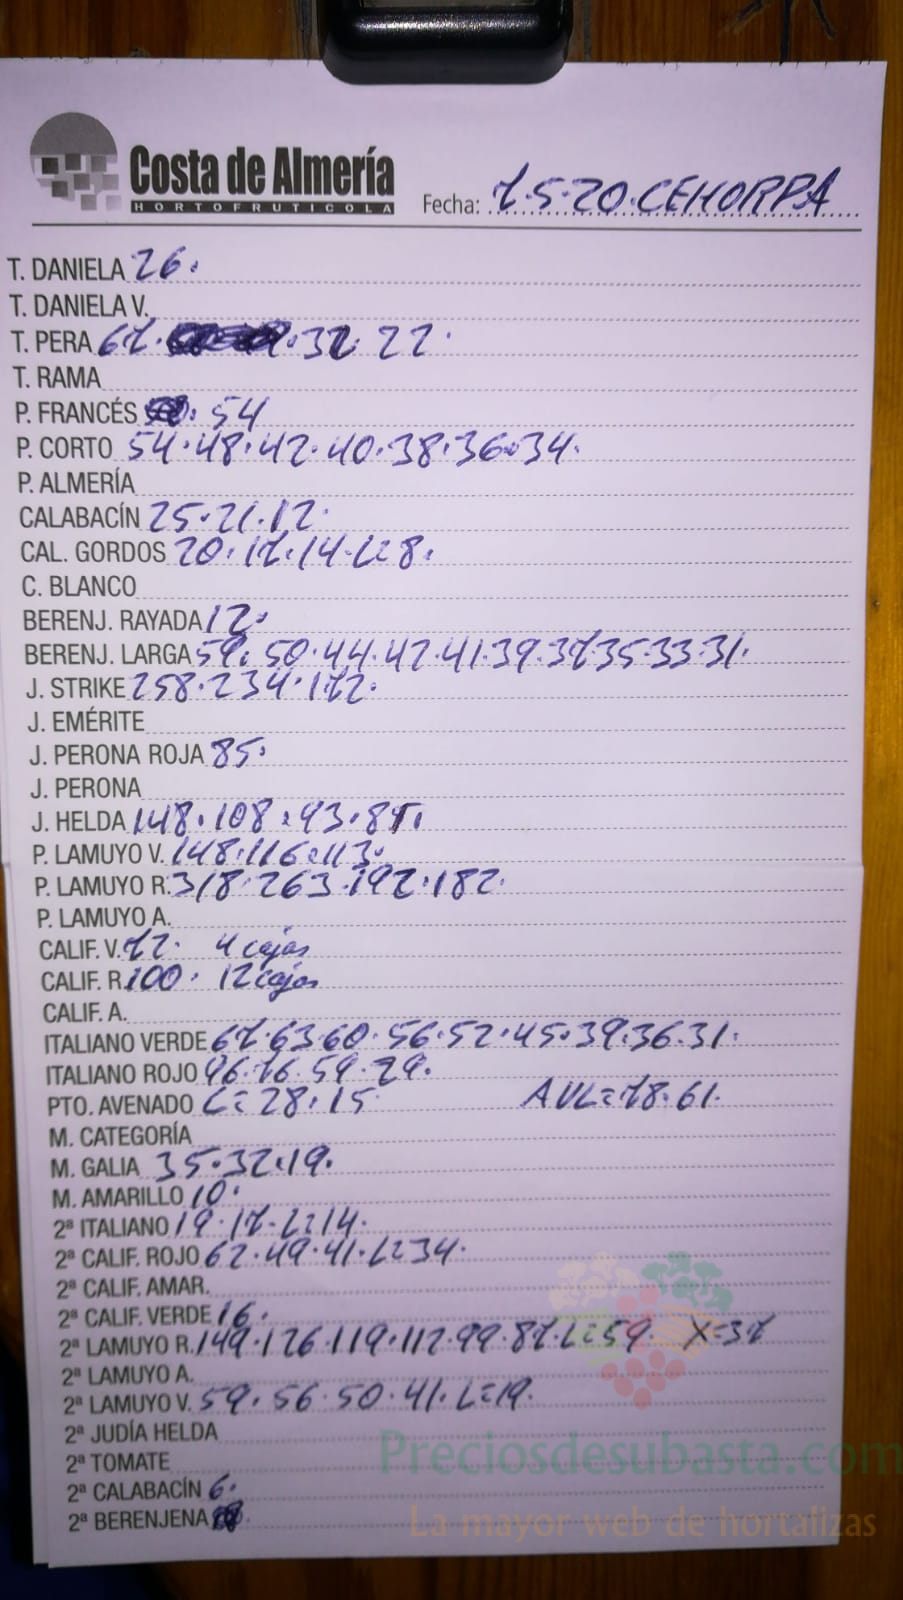 Costa de Almería
HORTOFRUTICOLA
Fecha: 7.5.20.CEHORPA
T. DANIELA 26.
T. DANIELA V.
T. PERA 67. . 32. 22.
T. RAMA
P. FRANCÉS . 54
P. CORTO 54.48.42.40.38.36.34.
P. ALMERÍA
CALABACÍN 25.21.12.
CAL. GORDOS 20.17.14.L=8.
C. BLANCO
BERENJ. RAYADA 12.
BERENJ. LARGA 59. 50.44.42.41.39.37.35.33.31.
J. STRIKE 258.234.172.
J. EMÉRITE
J. PERONA ROJA 85.
J. PERONA
J. HELDA 148.108.93.
P. LAMUYO V. 148.116.113.
P. LAMUYO R. 318.263.192.182.
P. LAMUYO A.
CALIF. V. 72. 4 cajas
CALIF. R. 100. 12 cajas
CALIF. A.
ITALIANO VERDE 67.63.60.56.52.45.39.36.31.
ITALIANO ROJO 96.76.59.29.
PTO. AVENADO L=28.15 AVL=78.61.
M. CATEGORÍA
M. GALIA 35.32.19.
M. AMARILLO 10.
2ª ITALIANO 19.17.L=14.
2ª CALIF. ROJO 62.49.41.L=34.
2ª CALIF. AMAR.
2ª CALIF. VERDE 16.
2ª LAMUYO R. 149.126.119.112.99.87.L=59. X=37
2ª LAMUYO A.
2ª LAMUYO V. 59.56.50.41.L=19.
2ª JUDÍA HELDA
2ª TOMATE
2ª CALABACÍN 6.
2ª BERENJENA
Preciosdesubasta.com
La mayor web de hortalizas